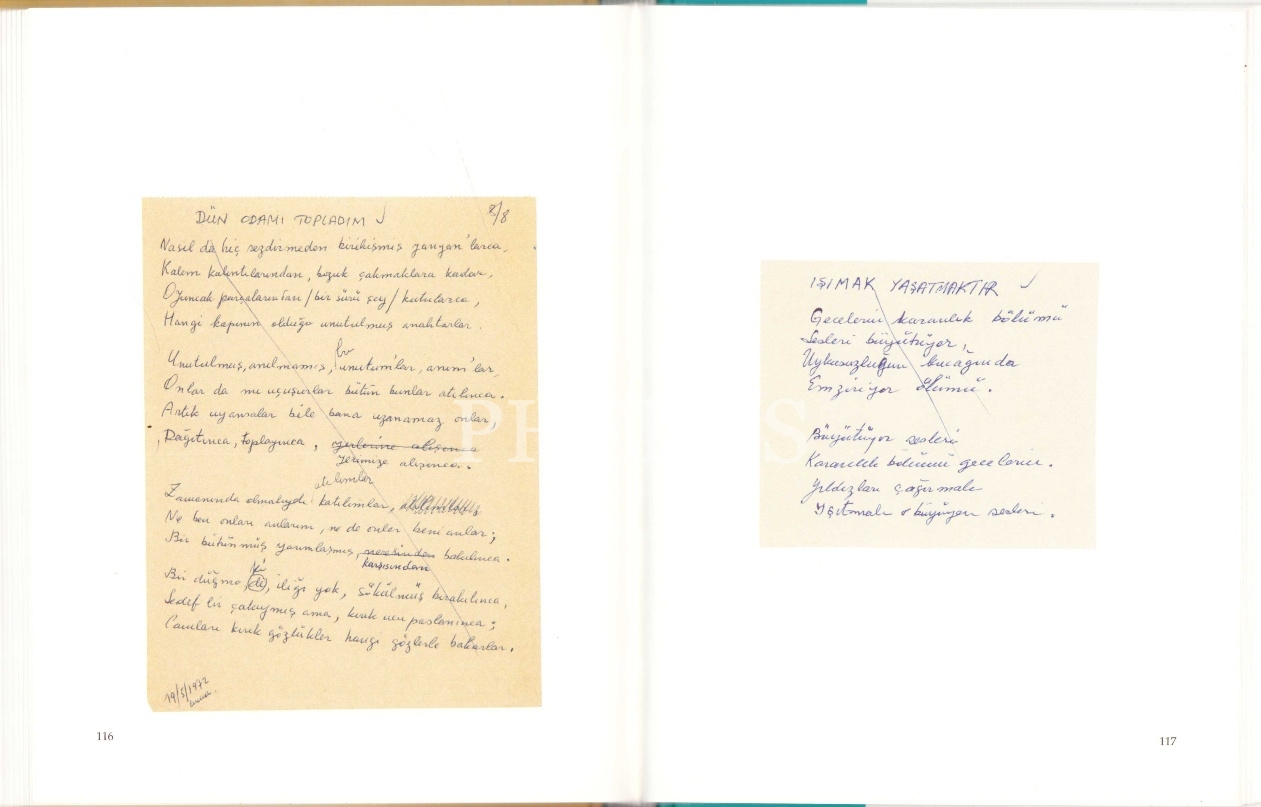 DÜN ODAMI TOPLADIM
8/8
Nasıl da hiç sezdirmeden birikişmiş yanyan'larca,
Kalem kalıntılarından, bozuk çakmaklara kadar,
Oyuncak parçalarından / bir sürü şey / kutularca,
Hangi kapının olduğu unutulmuş anahtarlar.
bu
Unutulmuş, anılmamış, unutum'lar, anım'lar,
Onlar da mı uçuşurlar bütün bunlar atılınca.
Artık uyansalar bile bana uzanamaz onlar
Dağıtınca, toplayınca, yerlerine alışınca
Yerimize alışınca.
atılımlar
Zamanında olmalıydı katılımlar,
Ne ben onları anlarım, ne de onlar beni anlar;
Bir bütünmüş yarımlaşmış, neresinden bakılınca.
karşısından
Bir düğme de, iliği yok, sökülmüş bırakılınca,
Sedef bir çakıymış ama, kırık ucu paslanınca;
Camları kırık gözlükler hangi gözlerle bakarlar.
19/5/1972
116
IŞIMAK YAŞATMAKTIR
Gecelerin karanlık bölümü
Sesleri büyütüyor,
Uykusuzluğun kucağında
Emziriyor ölümü.
Büyütüyor sesleri
Karanlık bölümü gecelerin.
Yıldızları çağırmalı
Işıtmalı o büyüyen sesleri.
117